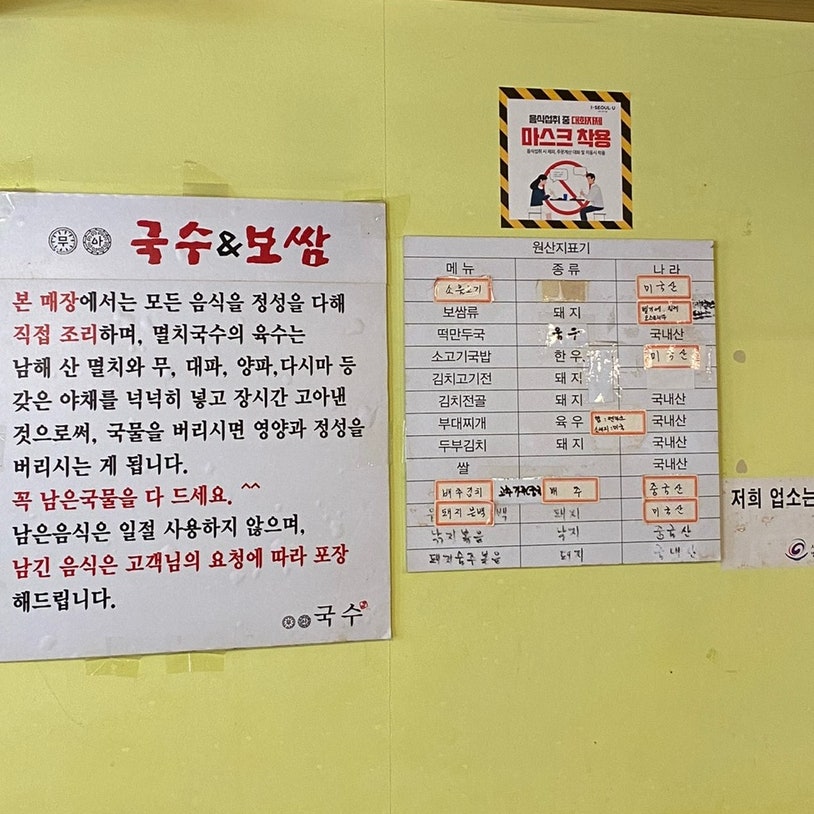 무 아 국수&보쌈
본 매장에서는 모든 음식을 정성을 다해
직접 조리하며, 멸치국수의 육수는
남해 산 멸치와 무, 대파, 양파,다시마 등
갖은 야채를 넉넉히 넣고 장시간 고아낸
것으로써, 국물을 버리시면 영양과 정성을
버리시는 게 됩니다.
꼭 남은국물을 다 드세요. ^^
남은음식은 일절 사용하지 않으며,
남긴 음식은 고객님의 요청에 따라 포장
해드립니다.
무 아 국수
I·SEOUL·U
음식섭취 중 대화자제
마스크 착용
음식섭취 시 제외, 주문계산 대화 및 이동시 착용
원산지표기
메 뉴 종 류 나 라
미국산
보쌈류 돼 지
떡만두국 육 우 국내산
소고기국밥 한 우 미국산
김치고기전 돼 지
김치전골 돼 지 국내산
부대찌개 육 우 국내산
두부김치 돼 지 국내산
쌀 국내산
배추김치 배 추 중국산
돼지 미국산
낙지볶음 낙지 중국산
돼지 국내산
저희 업소는